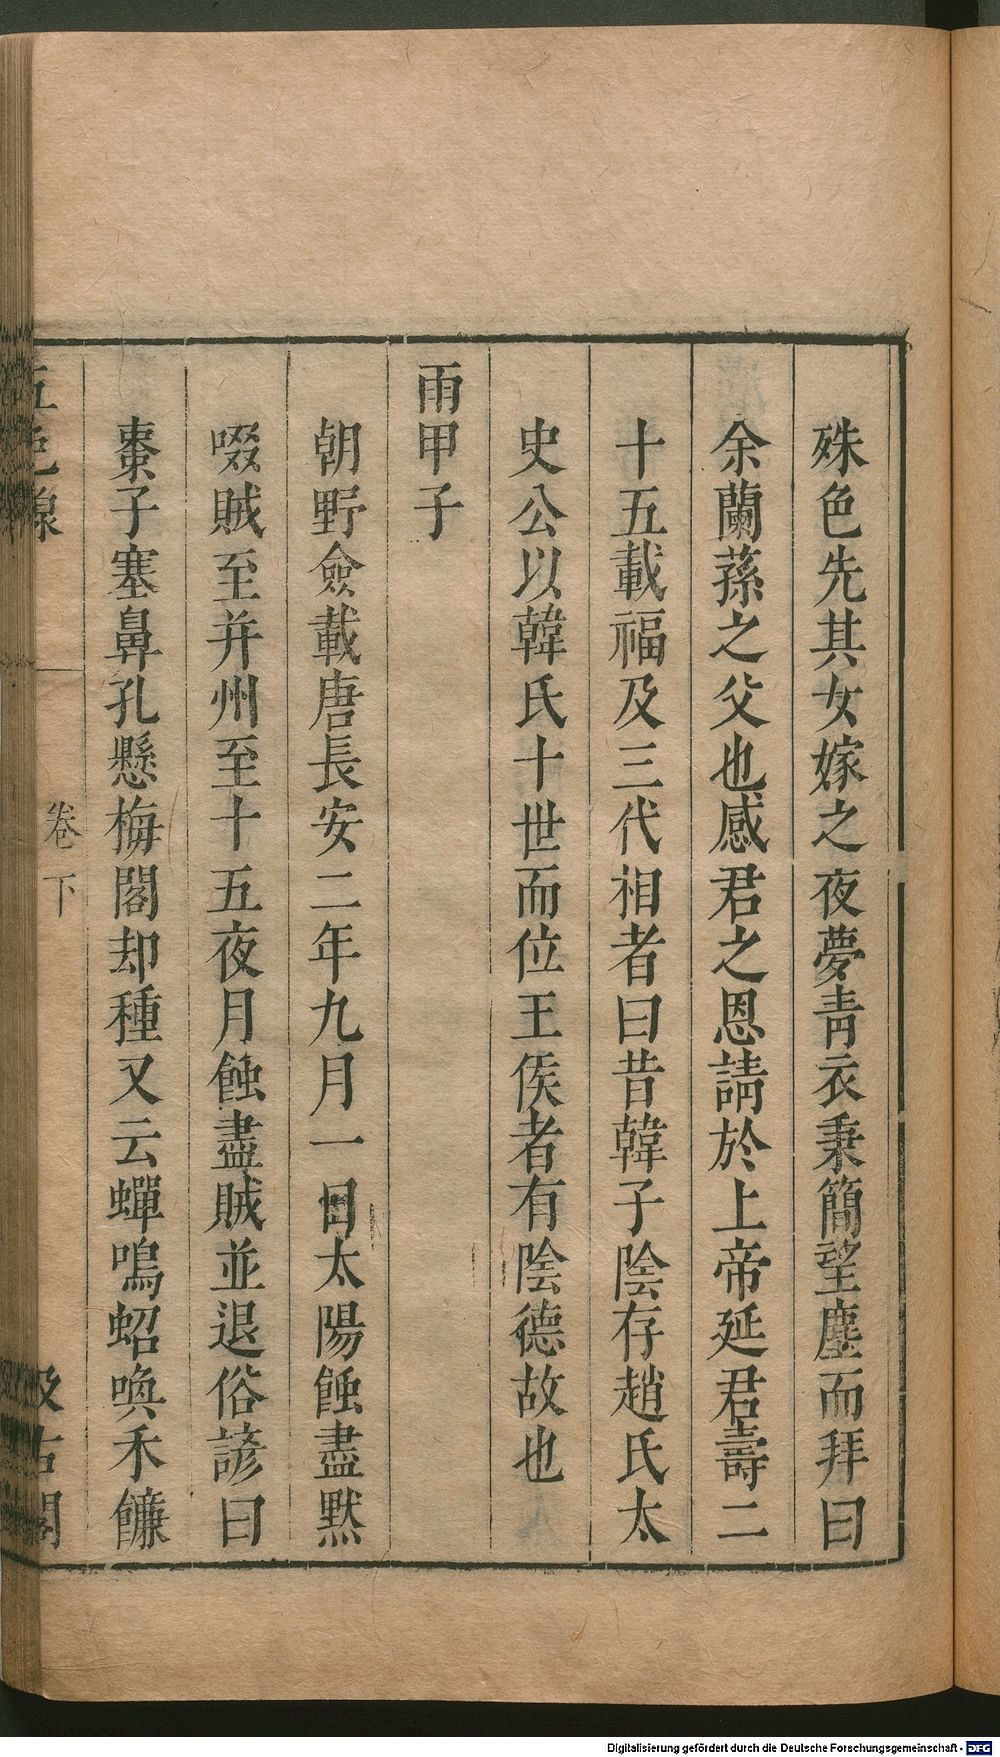 殊色先其女嫁之夜夢靑衣秉簡望塵而拜曰
余蘭蓀之父也感君之恩請於上帝延君壽二
十五載福及三代相者曰昔韓子陰存趙氏太
史公以韓氏十世而位王侯者有陰德故也
雨甲子
朝野僉載唐長安二年九月一日太陽蝕盡默
啜賊至幷州至十五夜月蝕盡賊並退俗諺曰
棗子塞鼻孔懸梅閣却種又云蟬鳴蛁喚禾䭑
五色線
卷下
汲古閣
Digitalisierung gefördert durch die Deutsche Forschungsgemeinschaft - DFG